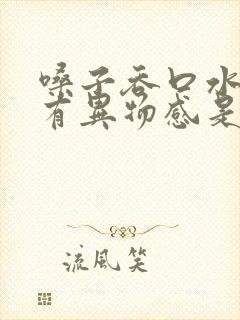 嗓子吞口水
有异物感是
流风笑